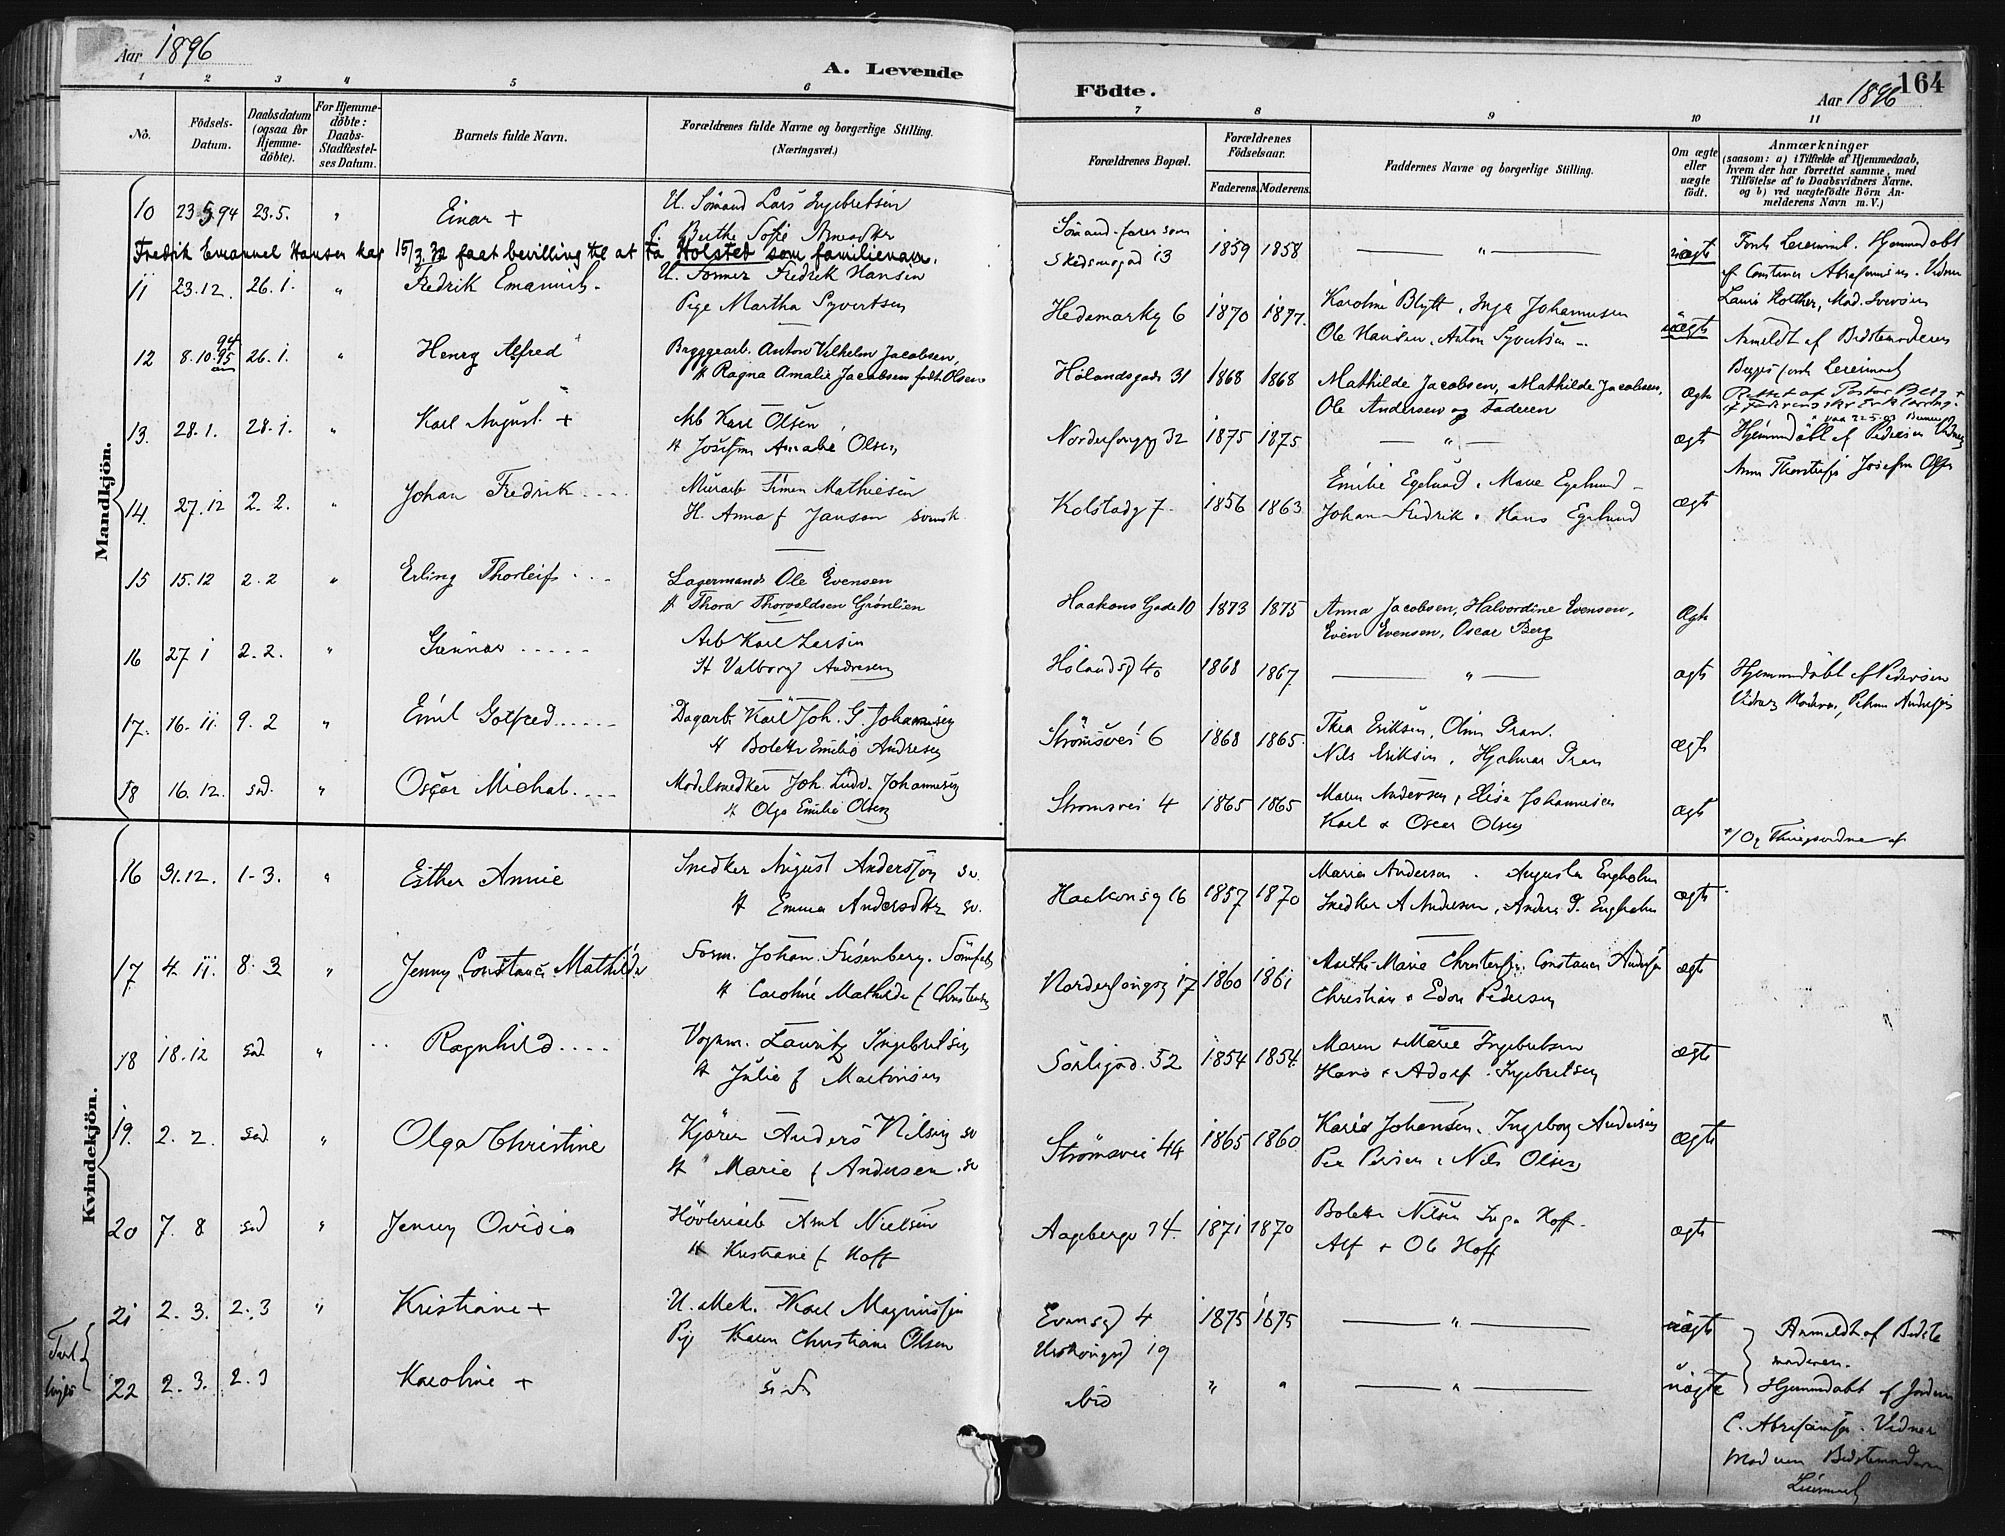 Aar 1896
A. Levende
Födte.
Aar 1896
164
1
2
3
4
5
6
7
8
9
10
11
No.
Födsels-
Datum.
Daabsdatum
(ogsaa for
Hjemme-
döbte).
For Hjemme-
döbte:
Daabs-
Stadfæstel-
ses Datum.
Barnets fulde Navn.
Forældrenes fulde Navne og borgerlige Stilling.
(Næringsvei.)
Forældrenes Bopæl.
Forældrenes
Födselsaar.
Faderens.
Moderens.
Faddernes Navne og borgerlige Stilling.
Om ægte
eller
uægte
födt.
Anmærkninger
(saasom: a) i Tilfælde af Hjemmedaab,
hvem der har forrettet samme, med
Tilföielse af to Daabsvidners Navne,
og b) ved uægtefödte Börn An-
melderens Navn m. V.)
Mandkjön.
10 23.5.94 23.5. " Einar +
U. Sømand Lars Ingebretsen
f. Berthe Sofie
Sømand
Skedsmogad 13 1859 1858 — " — uægte
Fredrik Emanuel Hansen har 15/3.32 faat bevilling til at ta Holsted som familienavn.
11 23.12. 26.1. " Fredrik Emanuel.
U. Former Fredrik Hansen
Pige Martha Syvertsen
Hedemarkg 6 1870 1877.
Karoline Blytt, Inga Johannesen
Ole Hansen, Anton Syvertsen
uægte
Anmeldt af Bedstemoderen
12 8.10.95 94 26.1. " Henry Alfred
Bryggearb. Anton Vilhelm Jacobsen,
H Ragna Amalie Jacobsen født Olsen
Hølandsgade 31 1868 1868
Mathilde Jacobsen, Mathilde Jacobsen,
Ole Andersen og Faderen
Ægte
13. 28.1. 28.1. " Karl August +
Arb Karl Olsen
H Josefine Amalie Olsen
32 1875 1875 — " — ægte
Hjemmedøbt af Pedersen
14. 27.12 2.2. " Johan Fredrik
Murarb Simen Mathiesen
H. Anna f Janson svensk
Kolstadg 7. 1856 1863
Emilie Egelund, Marie Egelund
Johan Fredrik, Hans Egelund
ægte
15 15.12 2.2 " Erling Thorleif
Lagermand Ole Evensen
H Thora Thorvaldsen Grønlien
Haakons Gade 10 1873 1875
Anna Jacobsen, Halvordine Evensen,
Even Evensen, Oscar Berg
Ægte
16 27 1 2.2. " Gunnar
Arb Karl Larsen
H Valborg Andresen
Hølandsg 40 1868 1867 — " — ægte
Hjemmedøbt af Pedersen
17. 16.11. 9.2 " Emil Gotfred
Dagarb. Karl Joh. G. Johannesen
H Bolette Emilie Andresen
Strömsvei 6 1868 1865.
Thea Eriksen, Oline Gran.
Nils Eriksen, Hjalmar Gran
ægte
18 16.12. sad. " Oscar Michal.
Modelsnedker Joh. Ludv. Johannesen
H Olga Emilie Olsen
Strömsvei 4 1865 1865
Maren Andersen, Elise Johannesen
Karl & Oscar Olsen
ægte
Kvindekjön.
16 31.12. 1-3. " Esther Annie
Snedker August Andersson sv.
H Emma Andersdtr sv.
Haakonsg 16 1857 1870
Maria Anderson . Augusta Engholm
Snedker A Anderson, Anders P. Engholm
ægte
17 4.11. 8.3 " Jenny Constance Mathilde
Form. Johan Friesenberg.
H Caroline Mathilde f Christensen
17 1860 1861
Marthe Marie Christensen, Constance Andersen
Christian & Edon Pedersen
ægte
18 18.12 sad " Ragnhild
Vognm. Lauritz Ingebretsen
H Julie f Martinsen
Sörligad. 52 1854 1854.
Maren & Marie Ingebretsen
Hans & Adolf Ingebretsen
ægte
19. 2.2. sad " Olga Christine
Kjører Anders Nilsen sv
H Marie f Andersen sv
Strömsvei 44 1865 1860
Karie Johansen, Ingeborg Andersen
Per Persen, Nils Olsen
ægte
20 7.8 sad " Jenny Ovidia
Høvleriarb Nielsen
H Kristiane f Hoff
Aagebergv 14. 1871 1870
Bolette Nilsen Inga Hoff.
Alf & Ole Hoff
ægte
21 2.3. 2.3 " Kristiane +
U. Mek. Karl Magnussen
Pig Karen Christiane Olsen
Evensg 4
19
1875 1875 — " — uægte
Anmeldt af Bedste
moderen.
22 2.3. 2.3 Karoline +
ibid " " — " — uægte
Hjemmedøbt af Jordm
C. Abrahamsen. Vidner
Bedstemoderen